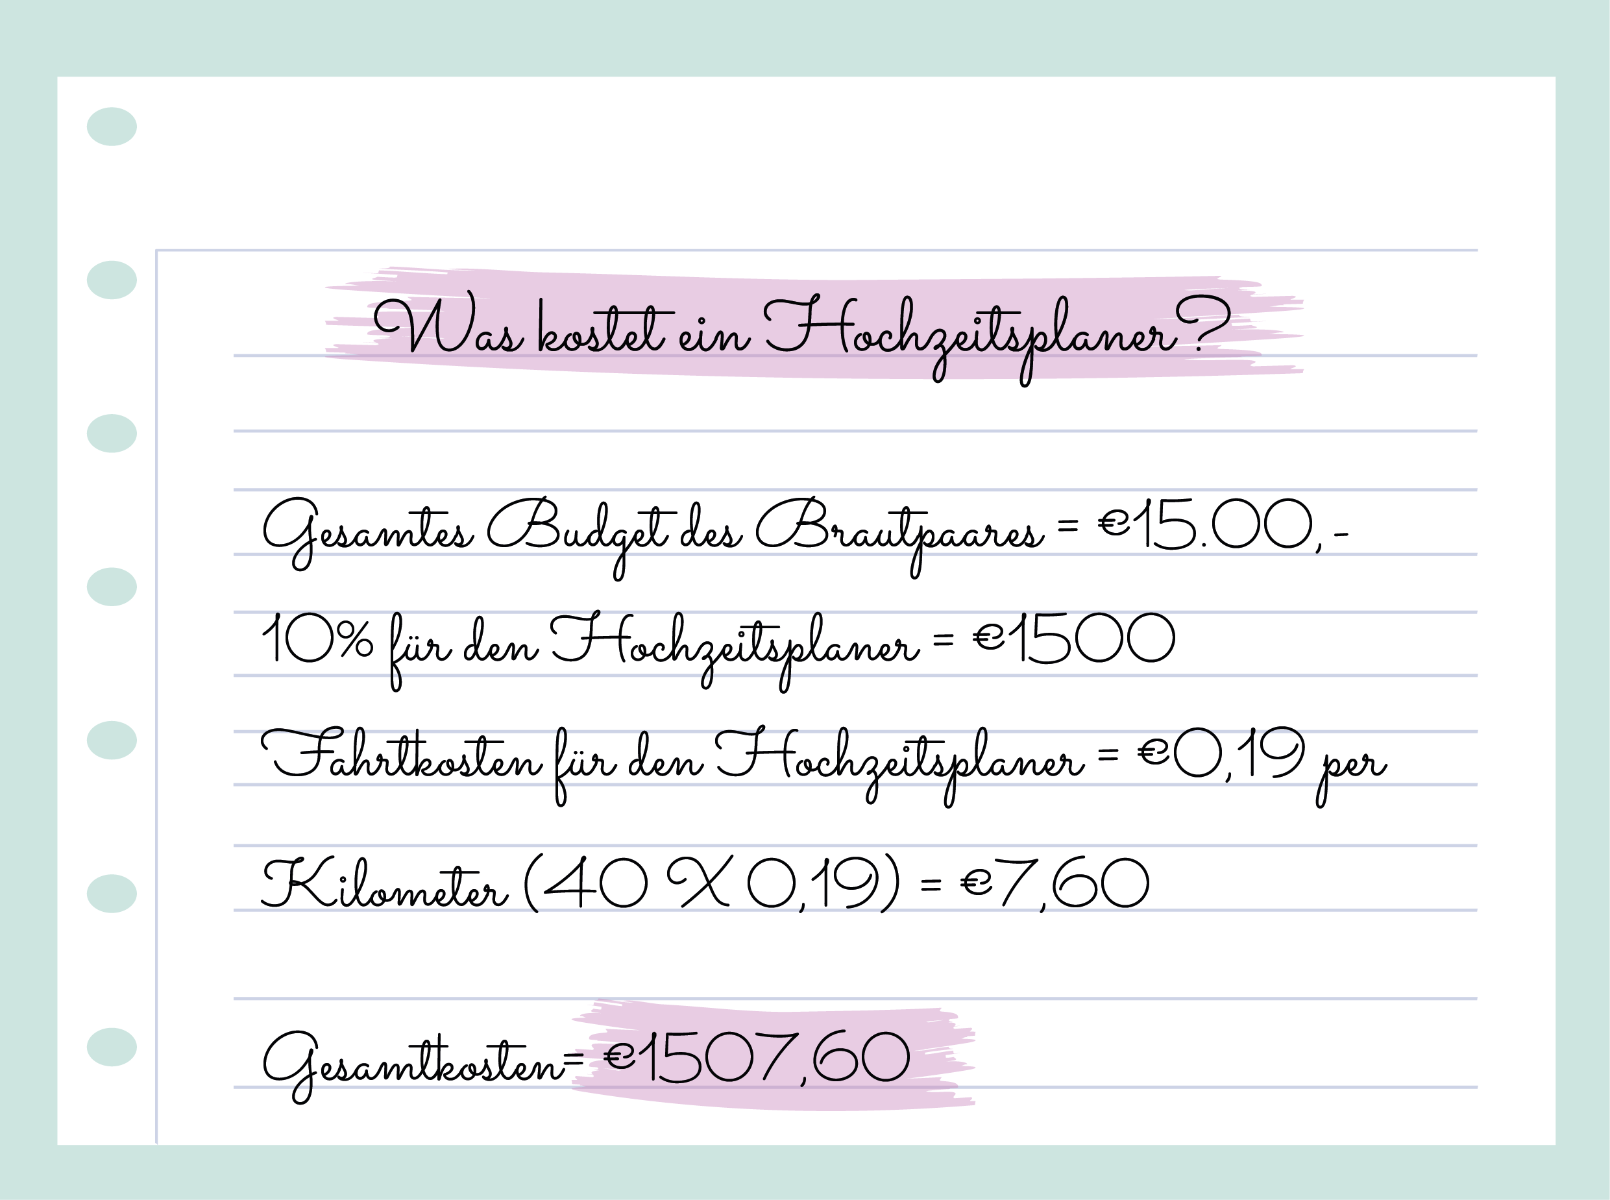 Was kostet ein Hochzeitsplaner?
Gesamtes Budget des Brautpaares = €15.00,-
10% für den Hochzeitsplaner = €1500
Fahrtkosten für den Hochzeitsplaner = €0,19 per
Kilometer (40 X 0,19) = €7,60
Gesamtkosten= €1507,60